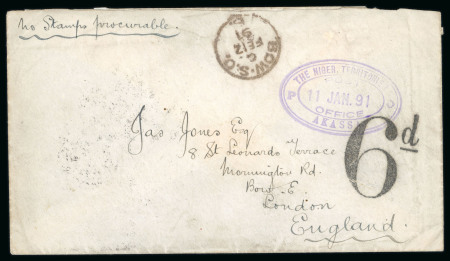 No Stamps procurable.
BOW. S.O.
C
FE 12
91
THE NIGER TERRITORIES
P O
11 JAN. 91
OFFICE
AKASSA
6d
Jas Jones Esq
8 St Leonards Terrace
Mornington Rd.
Bow. E.
London
England.